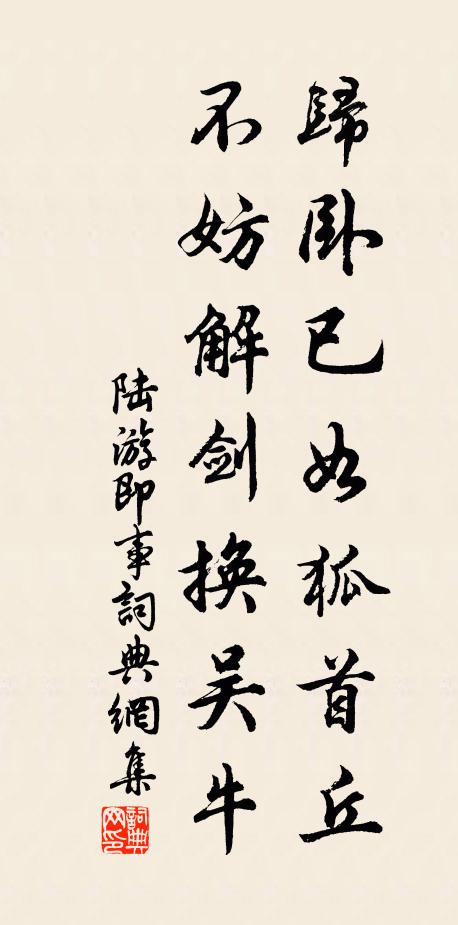 歸卧已如狐首丘
不妨解劍換吴牛
陆游即事詞典網集
詞典网印